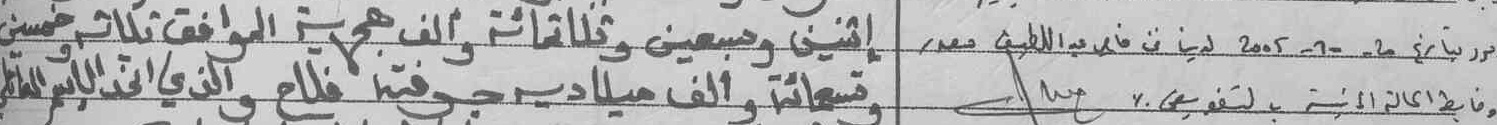 إثنين وسبعين وثلاثمائة وألف هجرية الموافق ثلاثة وخمسين
وتسعمائة وألف ميلادية حرفته فلاح والذي اتخذ اللقب العائلي
بتاريخ 20-10-2005 لدينا نحن عبد اللطيف
ضابط الحالة المدنية بالتفويض